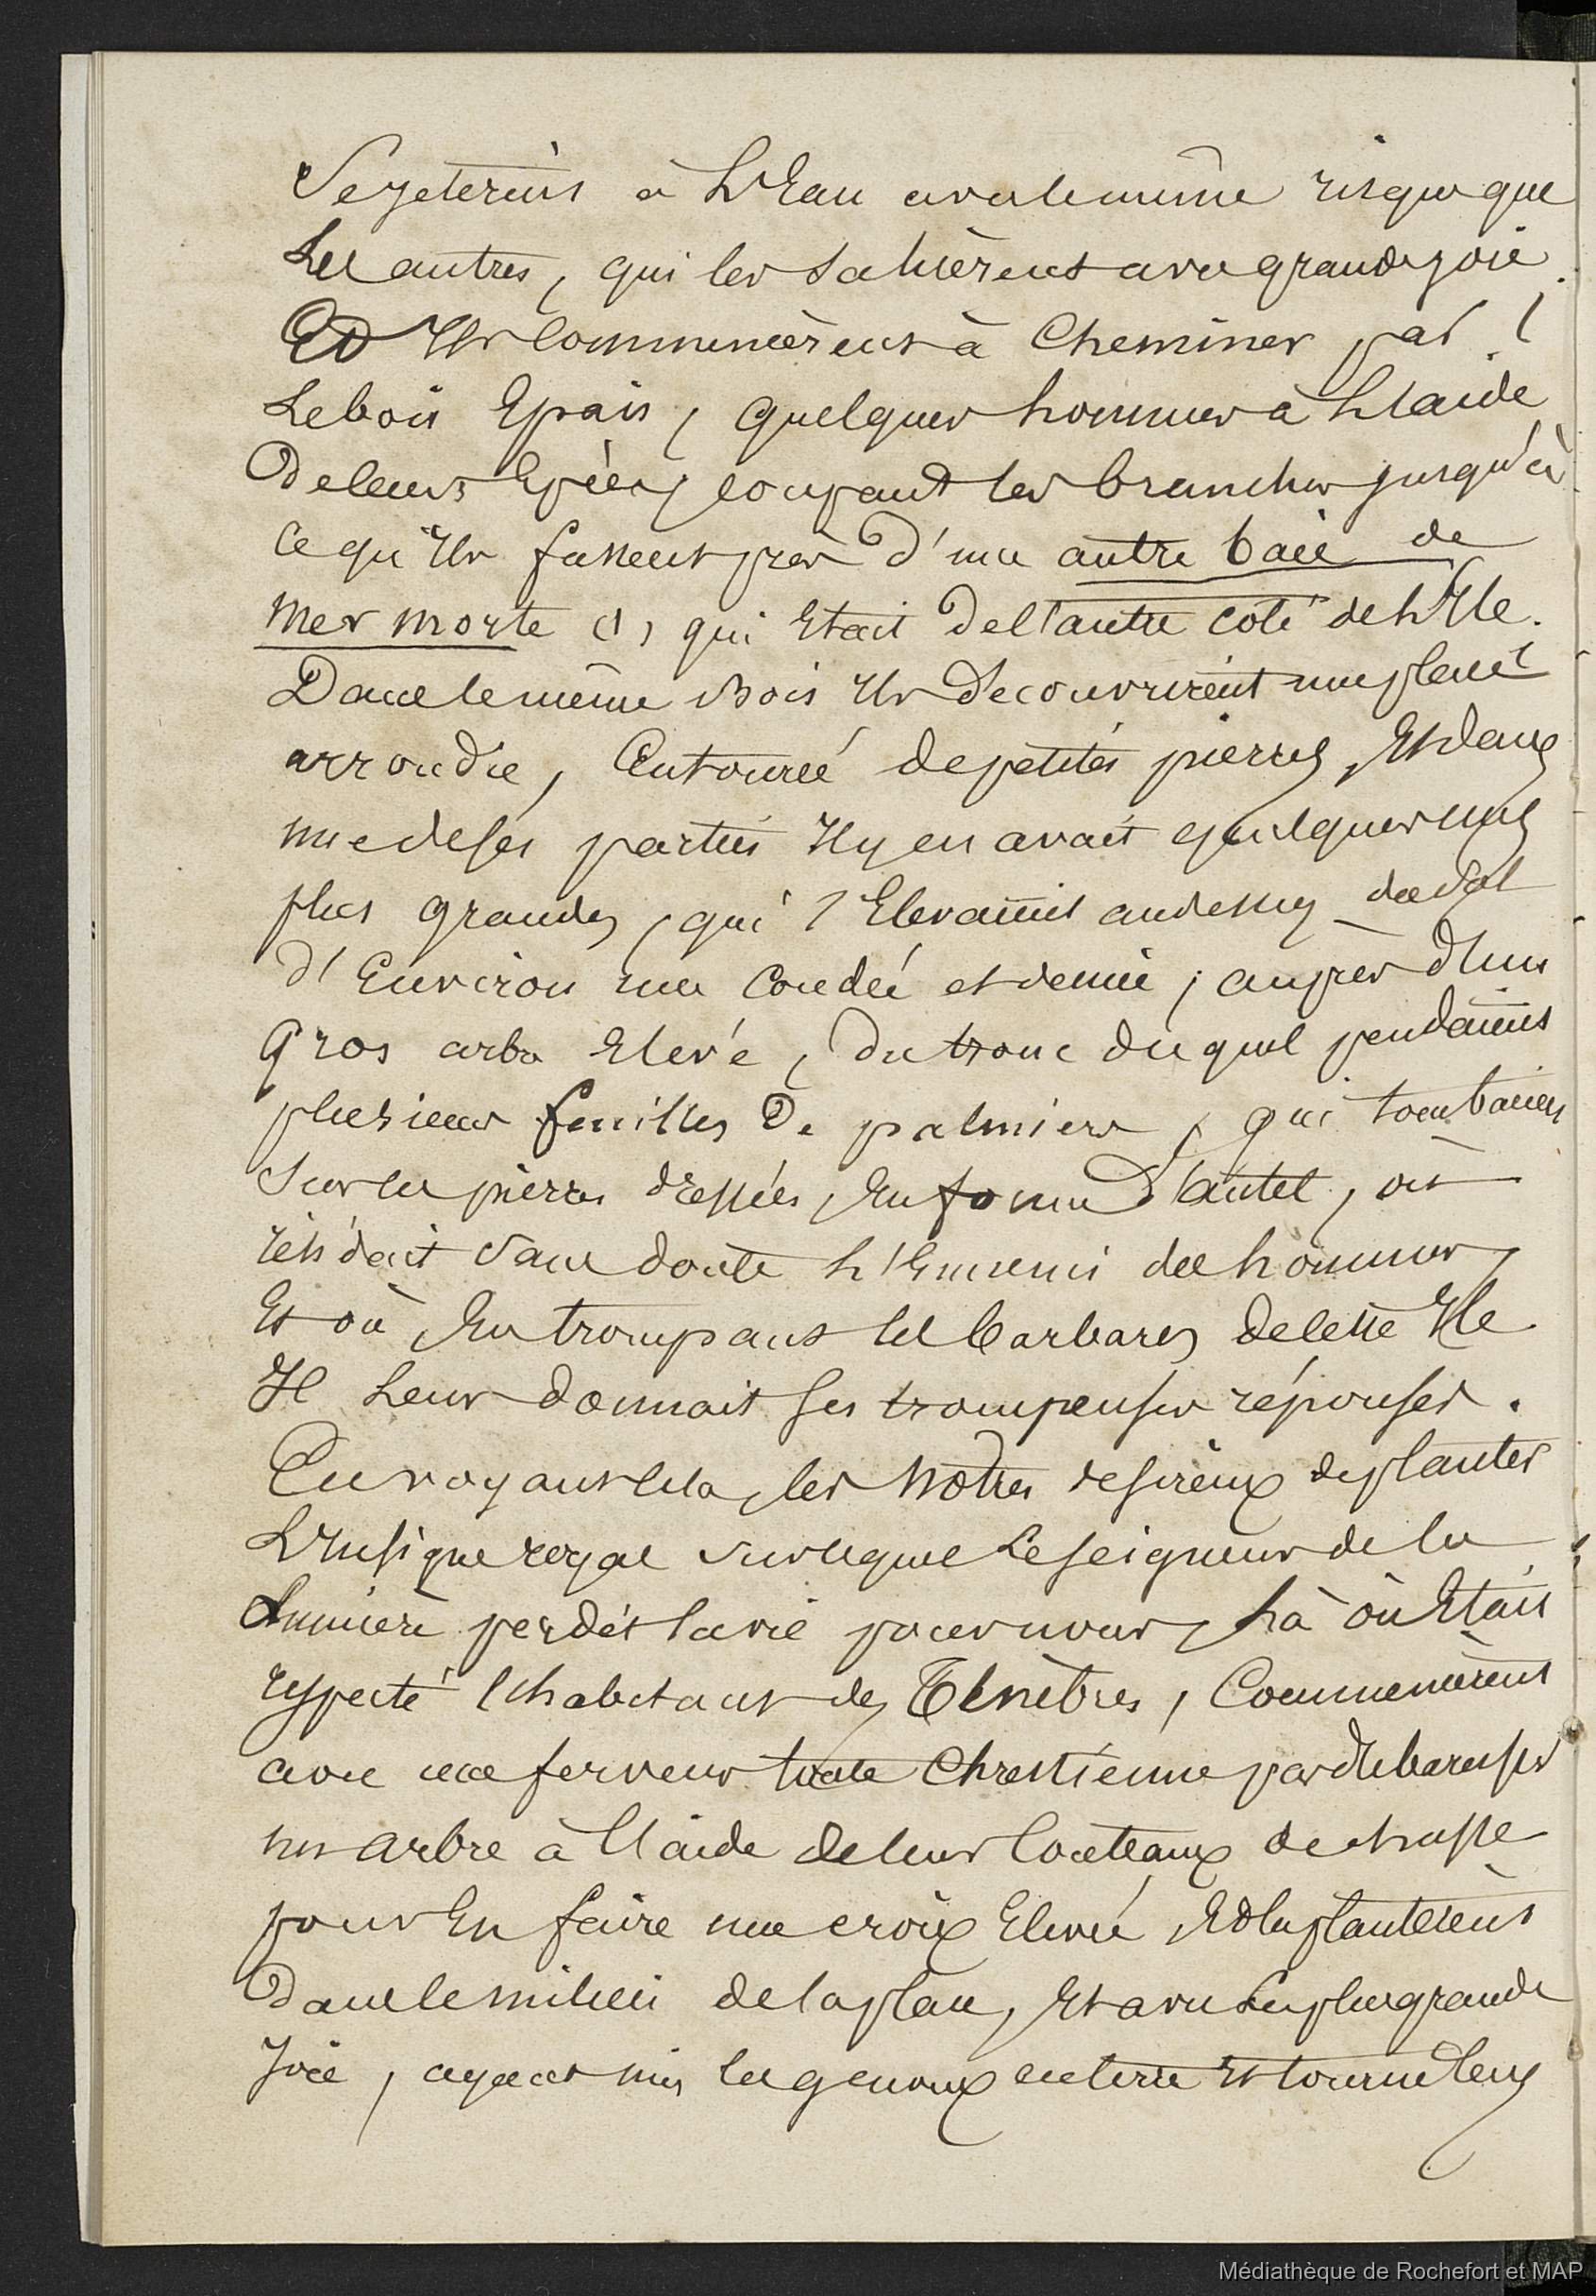 Se jeterent à L'Eau avec le même risque que
Les autres, qui les saluèrent avec grande joie.
Et Ils Commencèrent à Cheminer par
Le bois Epais, quelques hommes à L'aide
De leurs Epées, coupant les branches jusqu'à
Ce qu'Ils fussent près d'une autre baie de
mer morte (1) qui Etait de l'autre coté de L'Ile.
Dans le même Bois Ils découvrirent une place
arrondie, Entourée de petites pierres, Et dans
une de ses parties Il y en avait quelques unes
plus grandes, qui s'Elevaient au dessus du sol
d'Environ une Coudée et demie, auprès d'un
gros arbre Elevé, du tronc duquel pendaient
plusieurs feuilles De palmiers, qui tombaient
Sur les pierres dressées, En forme d'autel, où
résidait sans doute L'Ennemi des hommes,
Et où En trompant les barbares de cette Ile
Il Leur donnait ses trompeuses réponses.
En voyant cela, les Notres desireux de planter
L'Insigne royal sur lequel Le seigneur de la
Lumière perdit la vie pour nous, Là où Etait
respecté l'habitant des Ténèbres, Commencèrent
avec une ferveur toute Chrestienne par
un arbre à l'aide de leurs Couteaux de chasse
pour En faire une croix Elevée, Et la plantèrent
Dans le milieu de la place, Et avec La plus grande
Joie, ayant mis les genoux en terre Et tourné leurs
Médiathèque de Rochefort et MAP